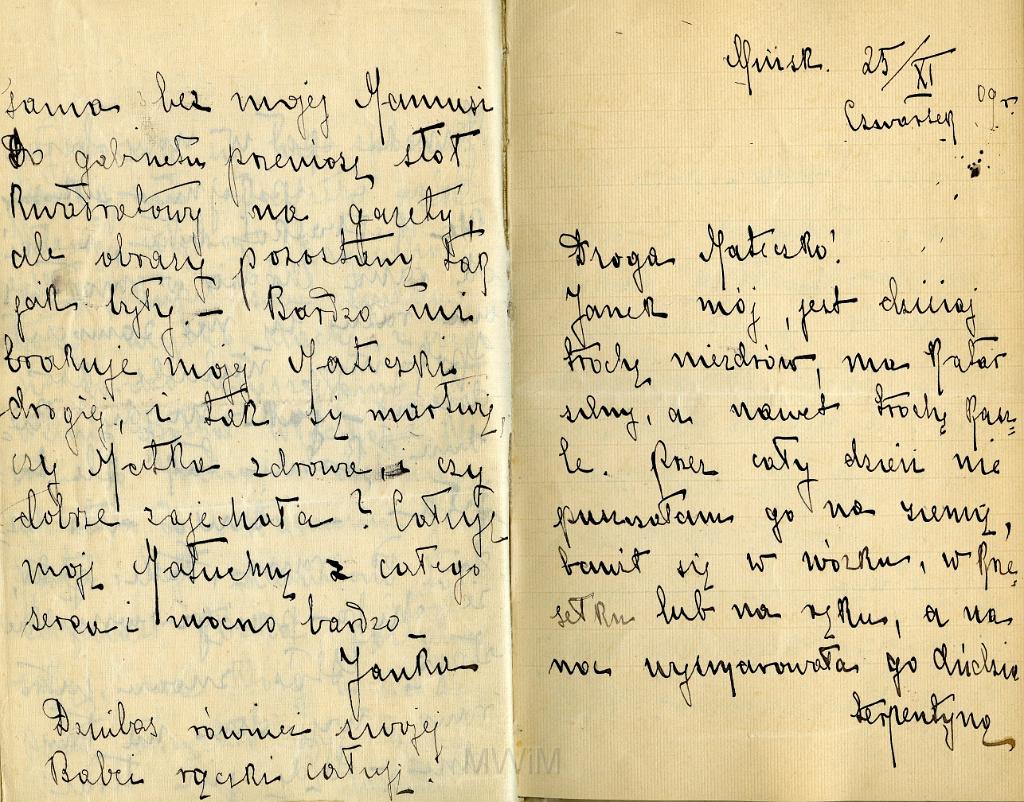 sama bez mojej Mamusi
Do gabinetu przeniosę stół
kwadratowy na gazety,
ale obrazy pozostaną tak
jak były. – Bardzo mi
brakuje mojej Mateczki
drogiej, i tak się martwię,
czy Matka zdrowa i czy
dobrze zajechała? Całuję
moją Matuchnę z całego
serca i mocno bardzo –
Janka
również swojej
Babci rączki całuje.
Mińsk. 25/XI 09 r
Czwartek
Droga Mateczko!
Janek mój, jest dzisiaj
trochę niezdrów, ma katar
silny, a nawet trochę kasz=
le. Przez cały dzień nie
puszczałam go na ziemię,
bawił się w wózku, w krze=
sełku lub na ręku, a na
noc wysmarowała go Ludzia
terpentyną
MWiM